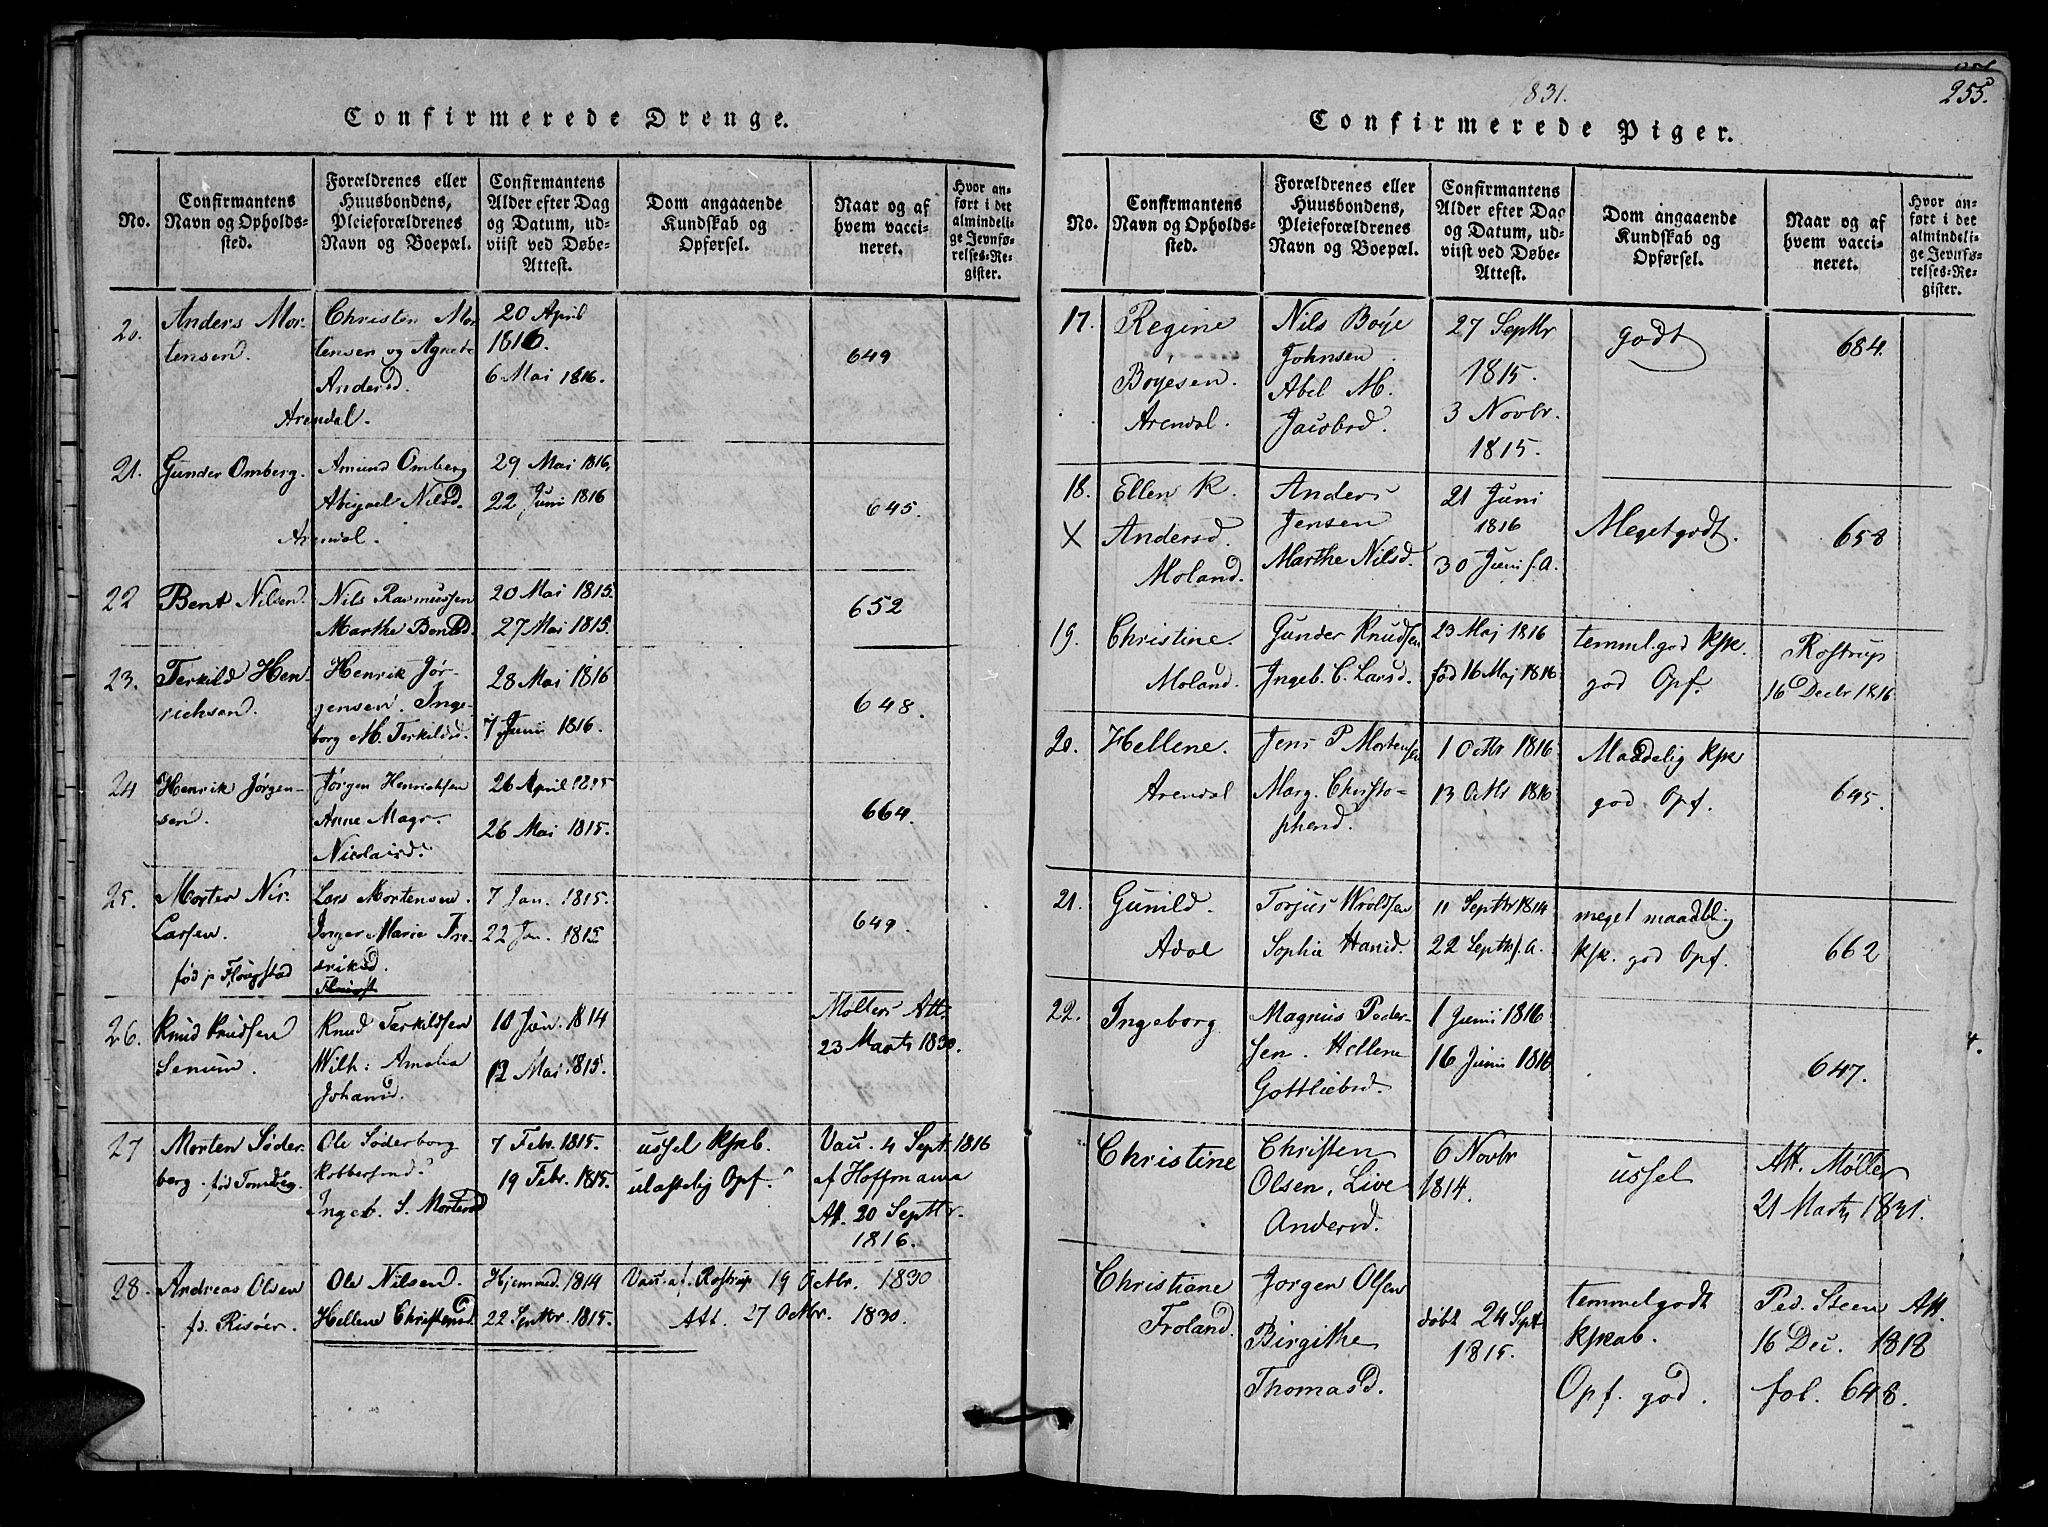 Confirmerede Drenge.
No.
Confirmantens
Navn og Opholds-
sted.
Forældrenes eller
Huusbondens,
Pleieforældrenes
Navn og Boepæl.
Confirmantens
Alder efter Dag
og Datum, ud-
viist ved Døbe-
Attest.
Dom angaaende
Kundskab og
Opførsel.
Naar og af
hvem vacci-
neret.
Hvor an-
ført i det
almindeli-
ge Jevnfø-
relses-Re-
gister.
20.
Anders Mor-
tensen.
Arendal.
Christen Mor
tensen og Agnete
Andersd.
20 April
1816.
6 Mai 1816.
649
21.
Gunder Omberg.
Arendal.
Amund Omberg
Abigael Nilsd.
29 Mai 1816,
22 Juni 1816
645.
22
Bent Nilsen.
Nils Rasmussen
Marthe Bentsd.
20 Mai 1815.
27 Mai 1815.
652
23.
Terkild Hen-
richsen.
Henrik Jør-
gensen. Inge-
borg M. Terkildsd.
28 Mai 1816
7 Junii 1816.
648.
24
Henrik Jørgen-
sen.
Jørgen Henrichsen
Anne Magr.
Nicolaisd.
26 April 1815
26 Mai 1815.
664.
25.
Morten Nic.
Larsen.
fød p Flougstad
Lars Mortensen.
Inger Marie Fre-
driksd.
7 Jan. 1815.
22 Jan. 1815
649.
26.
Knud Knudsen
Senum.
Knud Terkildsen
Wilh: Amalia
Johansd.
10 Jun. 1814
12 Mai 1815.
Møllers Att.
23 Marts 1830.
27
Morten Søder-
berg. fød
Ole Søderborg
Ingeb. S. Mortensd
7 Febr. 1815.
19 Febr. 1815.
ussel Kskb.
ulastelig Opf.
Vac. 4 Sept. 1816
af Hoffmann
Att. 20 Septbr.
1816.
28.
Andreas Olsen
fd. Risøer.
Ole Nilsen.
Hellene Christensd.
Hjemmed. 1814
22 Septbr. 1815.
Vac. af. Rostrup 19 Octbr. 1830
Att. 27 Octbr. 1830.
255.
1831.
Confirmerede Piger.
No.
Confirmantens
Navn og Opholds-
sted.
Forældrenes eller
Huusbondens,
Pleieforældrenes
Navn og Boepæl.
Confirmantens
Alder efter Dag
og Datum, ud-
viist ved Døbe-
Attest.
Dom angaaende
Kundskab og
Opførsel.
Naar og af
hvem vacci-
neret.
Hvor an-
ført i det
almindeli-
ge Jevnfø-
relses-Re-
gister.
17.
Regine
Bøyesen.
Arendal.
Nils Boye
Johnsen
Abel M.
Jacobsd.
27 Septbr
1815.
3 Novbr.
1815.
godt
684.
18.
X
Ellen K.
Andersd.
Moland.
Anders
Jensen
Marthe Nilsd.
21 Juni
1816
30 Juni s.A.
Meget godt.
658
19.
Christine.
Moland.
Gunder Knudsen
Ingeb. C. Larsd.
23 Maj 1816
fød 16 Maj 1816
temml. god Ksk.
god Opf.
Rostrup
16 Decbr 1816
20.
Hellene.
Arendal
Jens P Mortensen
Marg. Christo-
phersd.
1 Octbr 1816
13 Octbr 1816
Maadelig Ksk
god Opf.
645.
21.
Gunild.
Adal
Torjus Wroldsen
Sophie Hansd.
11 Septbr 1814
22 Septbr s.A.
meget maadelig
Ksk. god Opf.
662
22.
Ingeborg
Magnus Peder-
sen. Hellene
Gottliebsd.
1 Junii 1816
16 Junii 1816
647.
Christine
Christen
Olsen. Live
Andersd.
6 Novbr
1814.
ussel
Att. Møller
21 Marts 1831.
Christiane
Froland.
Jørgen Olsen
Birgithe
Thomasd.
døbt 24 Sept
1815.
temmel godt
Kskab.
Opf. god.
Ped. Steen Att.
16 Dec. 1818
fol. 648.